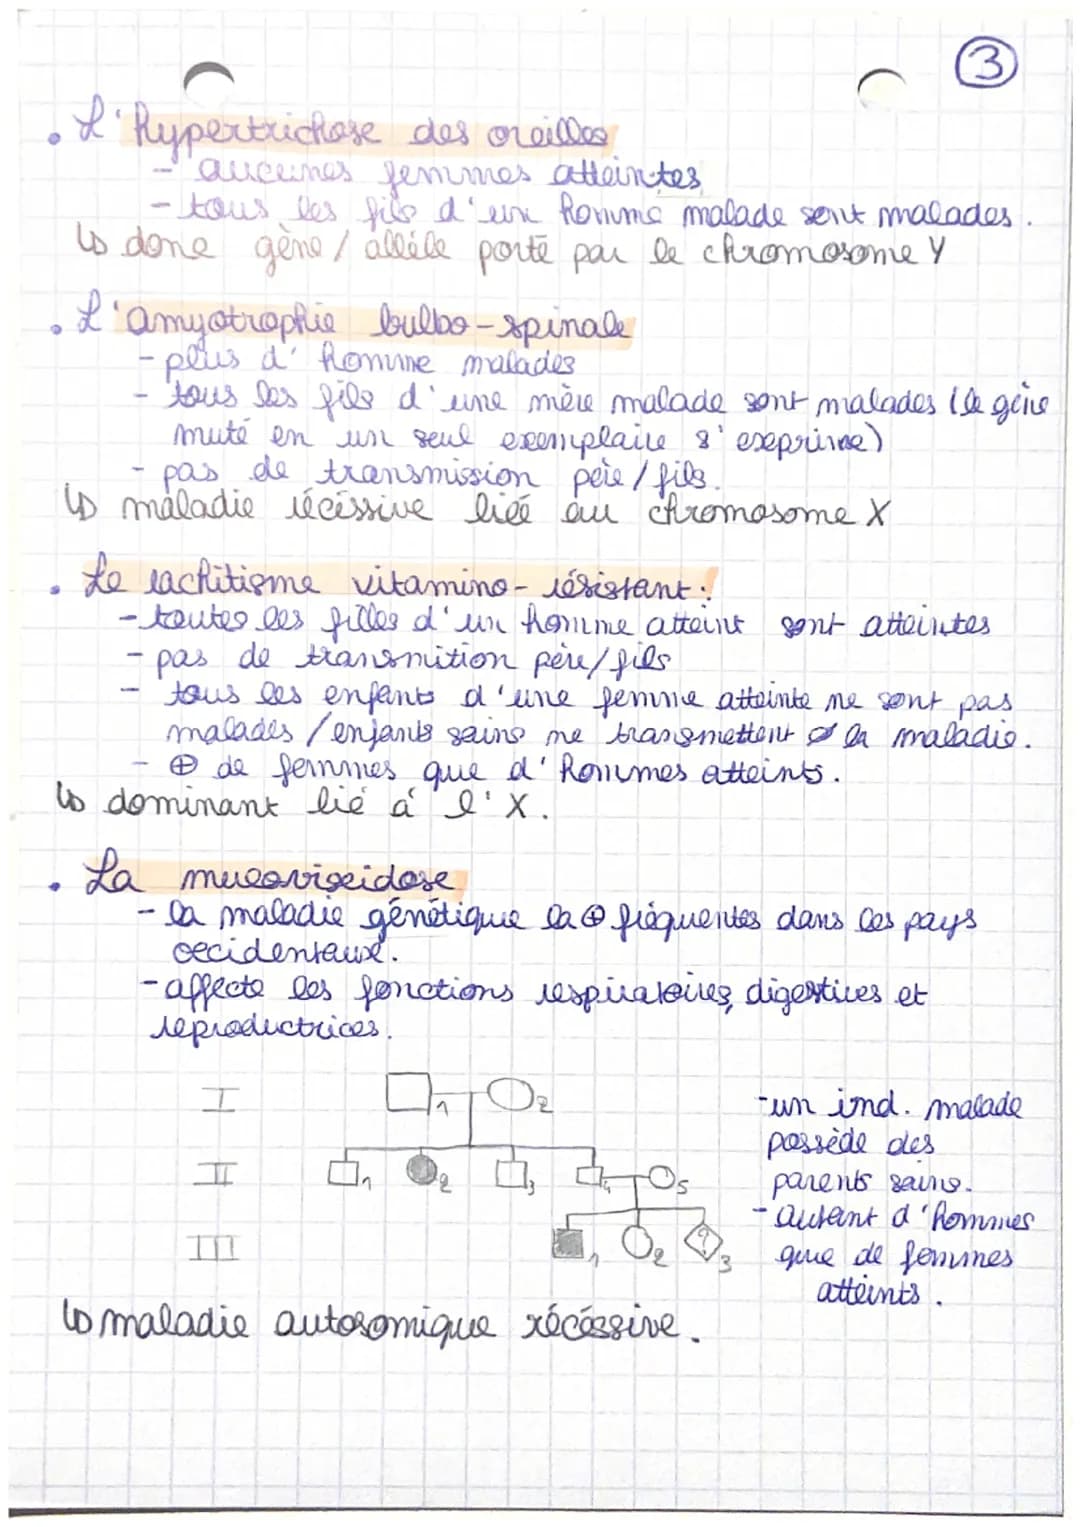 3
. L'hypertrichose des oreilles
- aucunes femmes atteintes
- tous les fils d'un homme malade sont malades.
↳ donc gène / allèle porté par le chromosome Y
. L'amyotrophie bulbo-spinale
- plus d'homme malades
- tous les fils d'une mère malade sont malades (le gène
muté en un seul exemplaire s'exeprime)
- pas de transmission père/fils.
↳ maladie récéssive liée au chromosome X
. Le rachitisme vitamino-résistant :
- toutes les filles d'un homme atteint sont atteintes
- pas de transmition père/fils
- tous les enfants d'une femme atteinte ne sont pas
malades / enfants sains ne transmettent la maladie.
- ⊕ de femmes que d'hommes atteints.
↳ dominant lié à l'X.
. La mucoviscidose
- la maladie génétique la ⊕ fréquentes dans les pays
occidentaux.
- affecte les fonctions respiratoires, digestives et
reproductrices.
I 1 2
II 1 2 3 4 5
III 1 2 ? 3
- un ind. malade
possède des
parents sains.
- autant d'hommes
que de femmes
atteints.
↳ maladie autosomique récéssive.